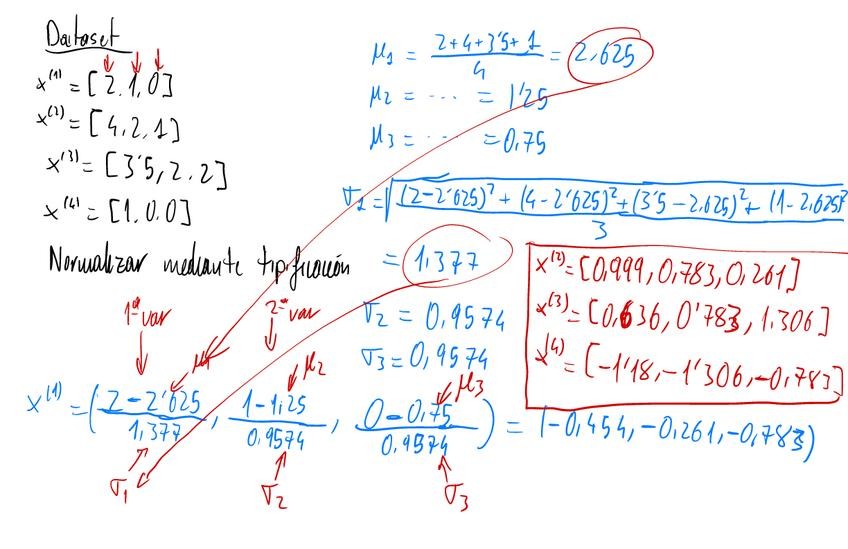 Dataset
x⁽¹⁾ = [2,1,0]
x⁽²⁾ = [4,2,1]
x⁽³⁾ = [3'5,2,2]
x⁽⁴⁾ = [1,0,0]
μ₁ = (2+4+3'5+1)/4 = 2,625
μ₂ = ... = 1'25
μ₃ = ... = 0,75
σ₁ = √(((2-2'625)² + (4-2'625)² + (3'5-2,625)² + (1-2,625)²)/3)
= 1,377
σ₂ = 0,9574
σ₃ = 0,9574
Normalizar mediante tipificación
1ª var
2ª var
μ₁
μ₂
μ₃
x⁽¹⁾ = ((2-2'625)/1,377, (1-1,25)/0,9574, (0-0,75)/0,9574) = (-0,454,-0,261,-0,783)
σ₁
σ₂
σ₃
x⁽²⁾ = [0,999,0,783,0,261]
x⁽³⁾ = [0,636,0'783,1,306]
x⁽⁴⁾ = [-1'18,-1'306,-0,783]